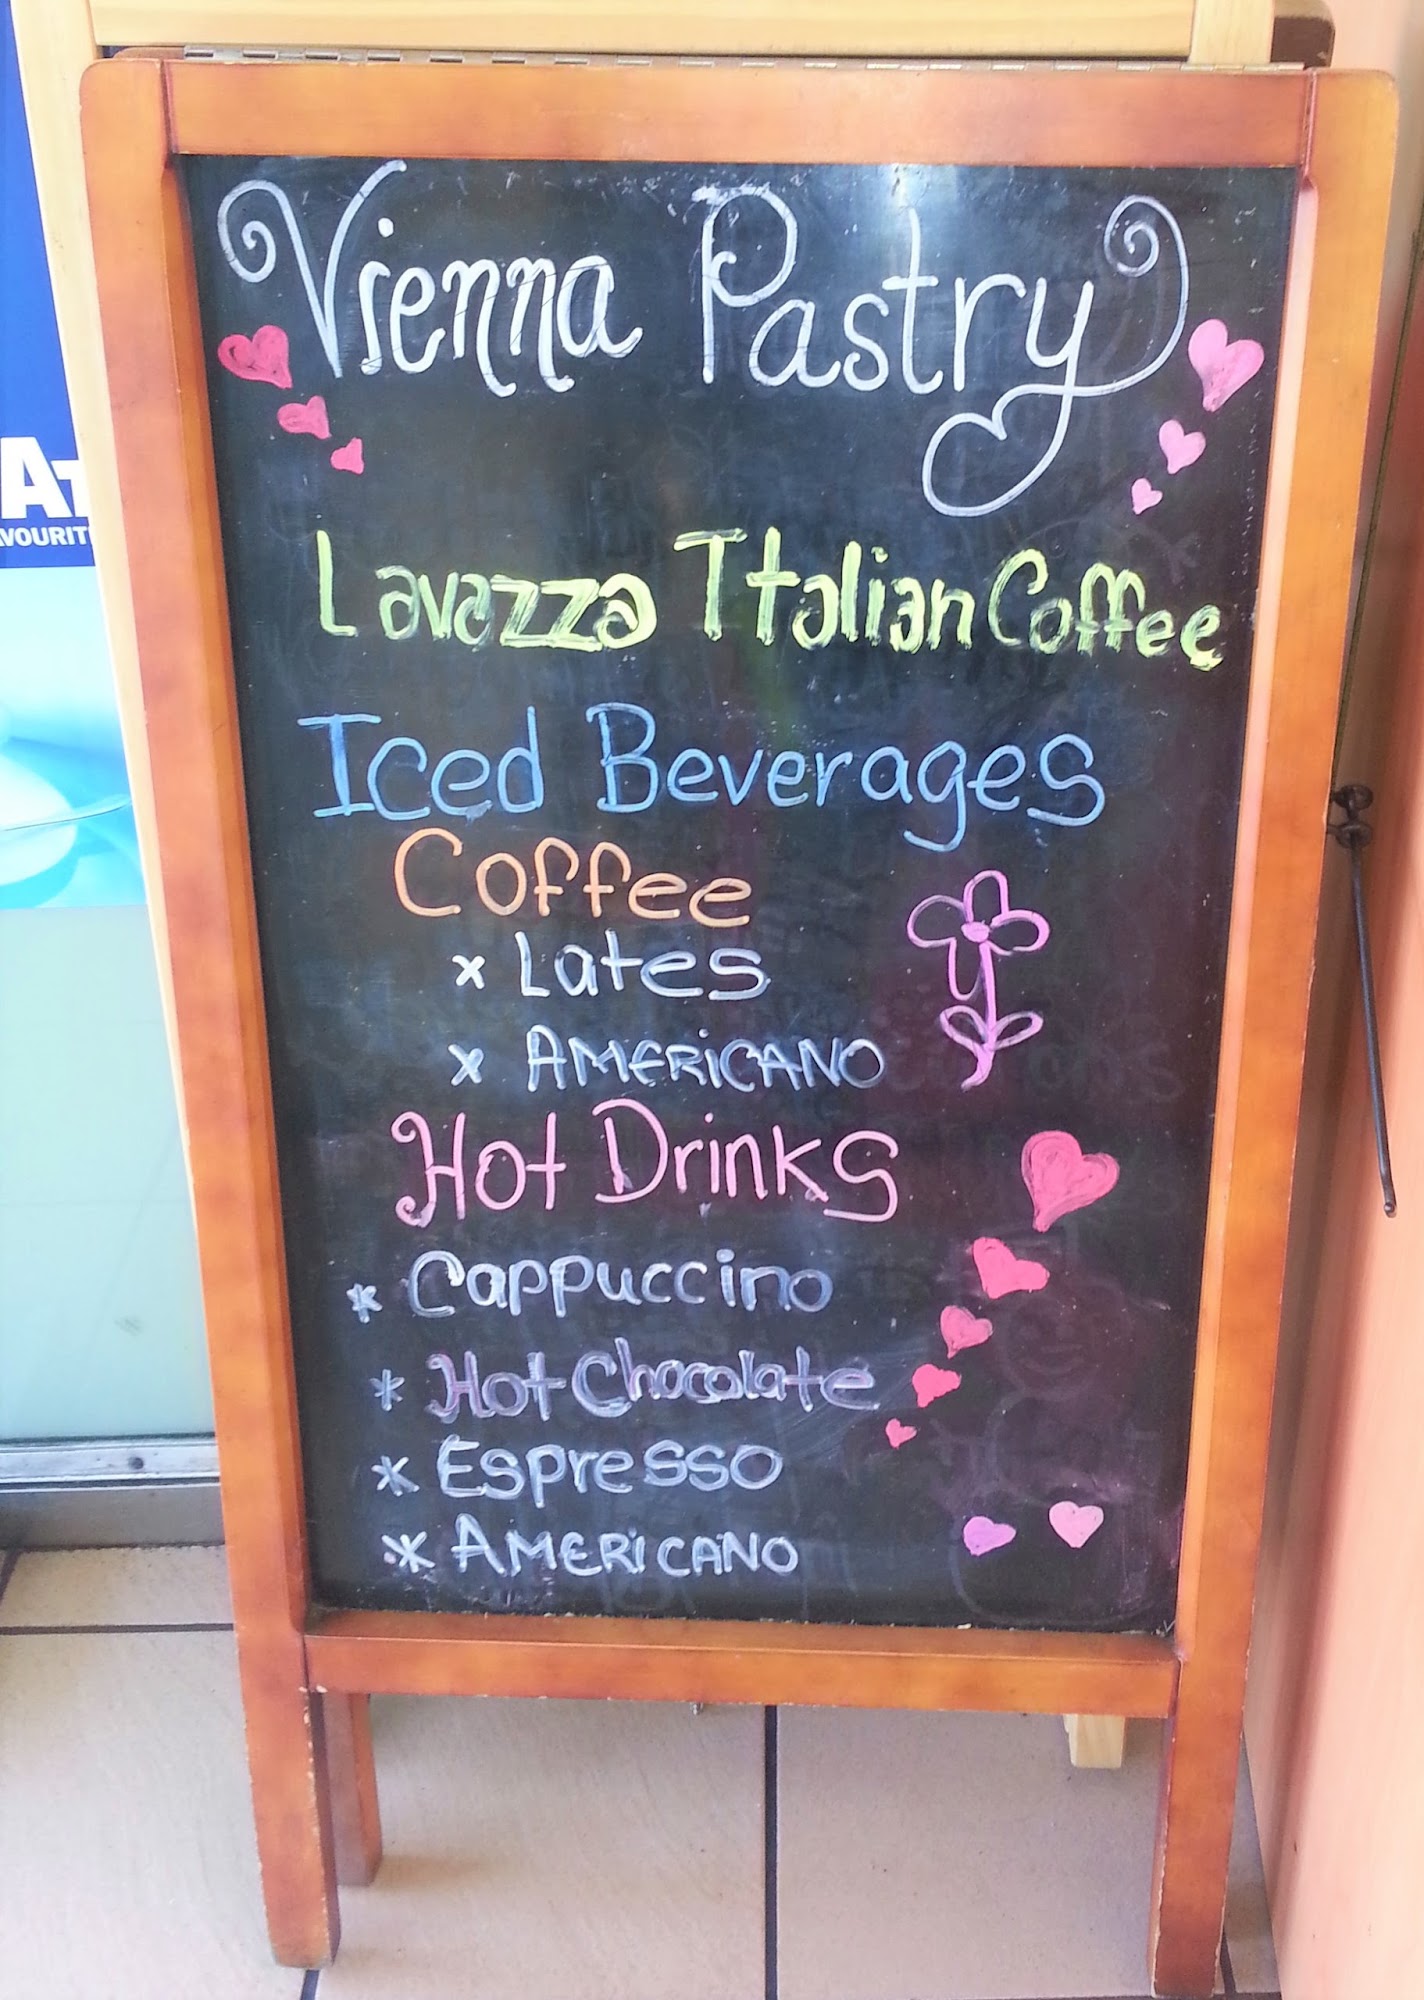 Vienna Pastry
Lavazza Italian Coffee
Iced Beverages
Coffee
x Lates
x AMERiCANO
Hot Drinks
* Cappuccino
* Hot Chocolate
* Espresso
* AMERiCANO